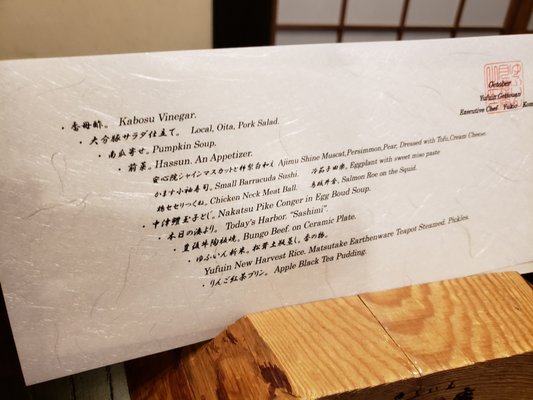 October
Yufuin Gettouan
Executive Chef Yukio Kom
・香母酢。 Kabosu Vinegar.
・大分豚サラダ仕立て。 Local, Oita, Pork Salad.
・南瓜寄せ。 Pumpkin Soup.
・前菜。 Hassun. An Appetizer.
安心院シャインマスカットと柿梨白和え Ajimu Shine Muscat, Persimmon, Pear, Dressed with Tofu, Cream Cheese.
かます小袖寿司。 Small Barracuda Sushi. 冷茄子田楽。 Eggplant with sweet miso paste
鶏セセリつくね。 Chicken Neck Meat Ball. 烏賊黄金。 Salmon Roe on the Squid.
・中津鱧玉子とじ。 Nakatsu Pike Conger in Egg Boud Soup.
・本日の湊より。 Today's Harbor. "Sashimi".
・豊後牛陶板焼。 Bungo Beef. on Ceramic Plate.
・ゆふいん新米。松茸土瓶蒸し。香の物。
Yufuin New Harvest Rice. Matsutake Earthenware Teapot Steamed. Pickles.
・りんご紅茶プリン。 Apple Black Tea Pudding.